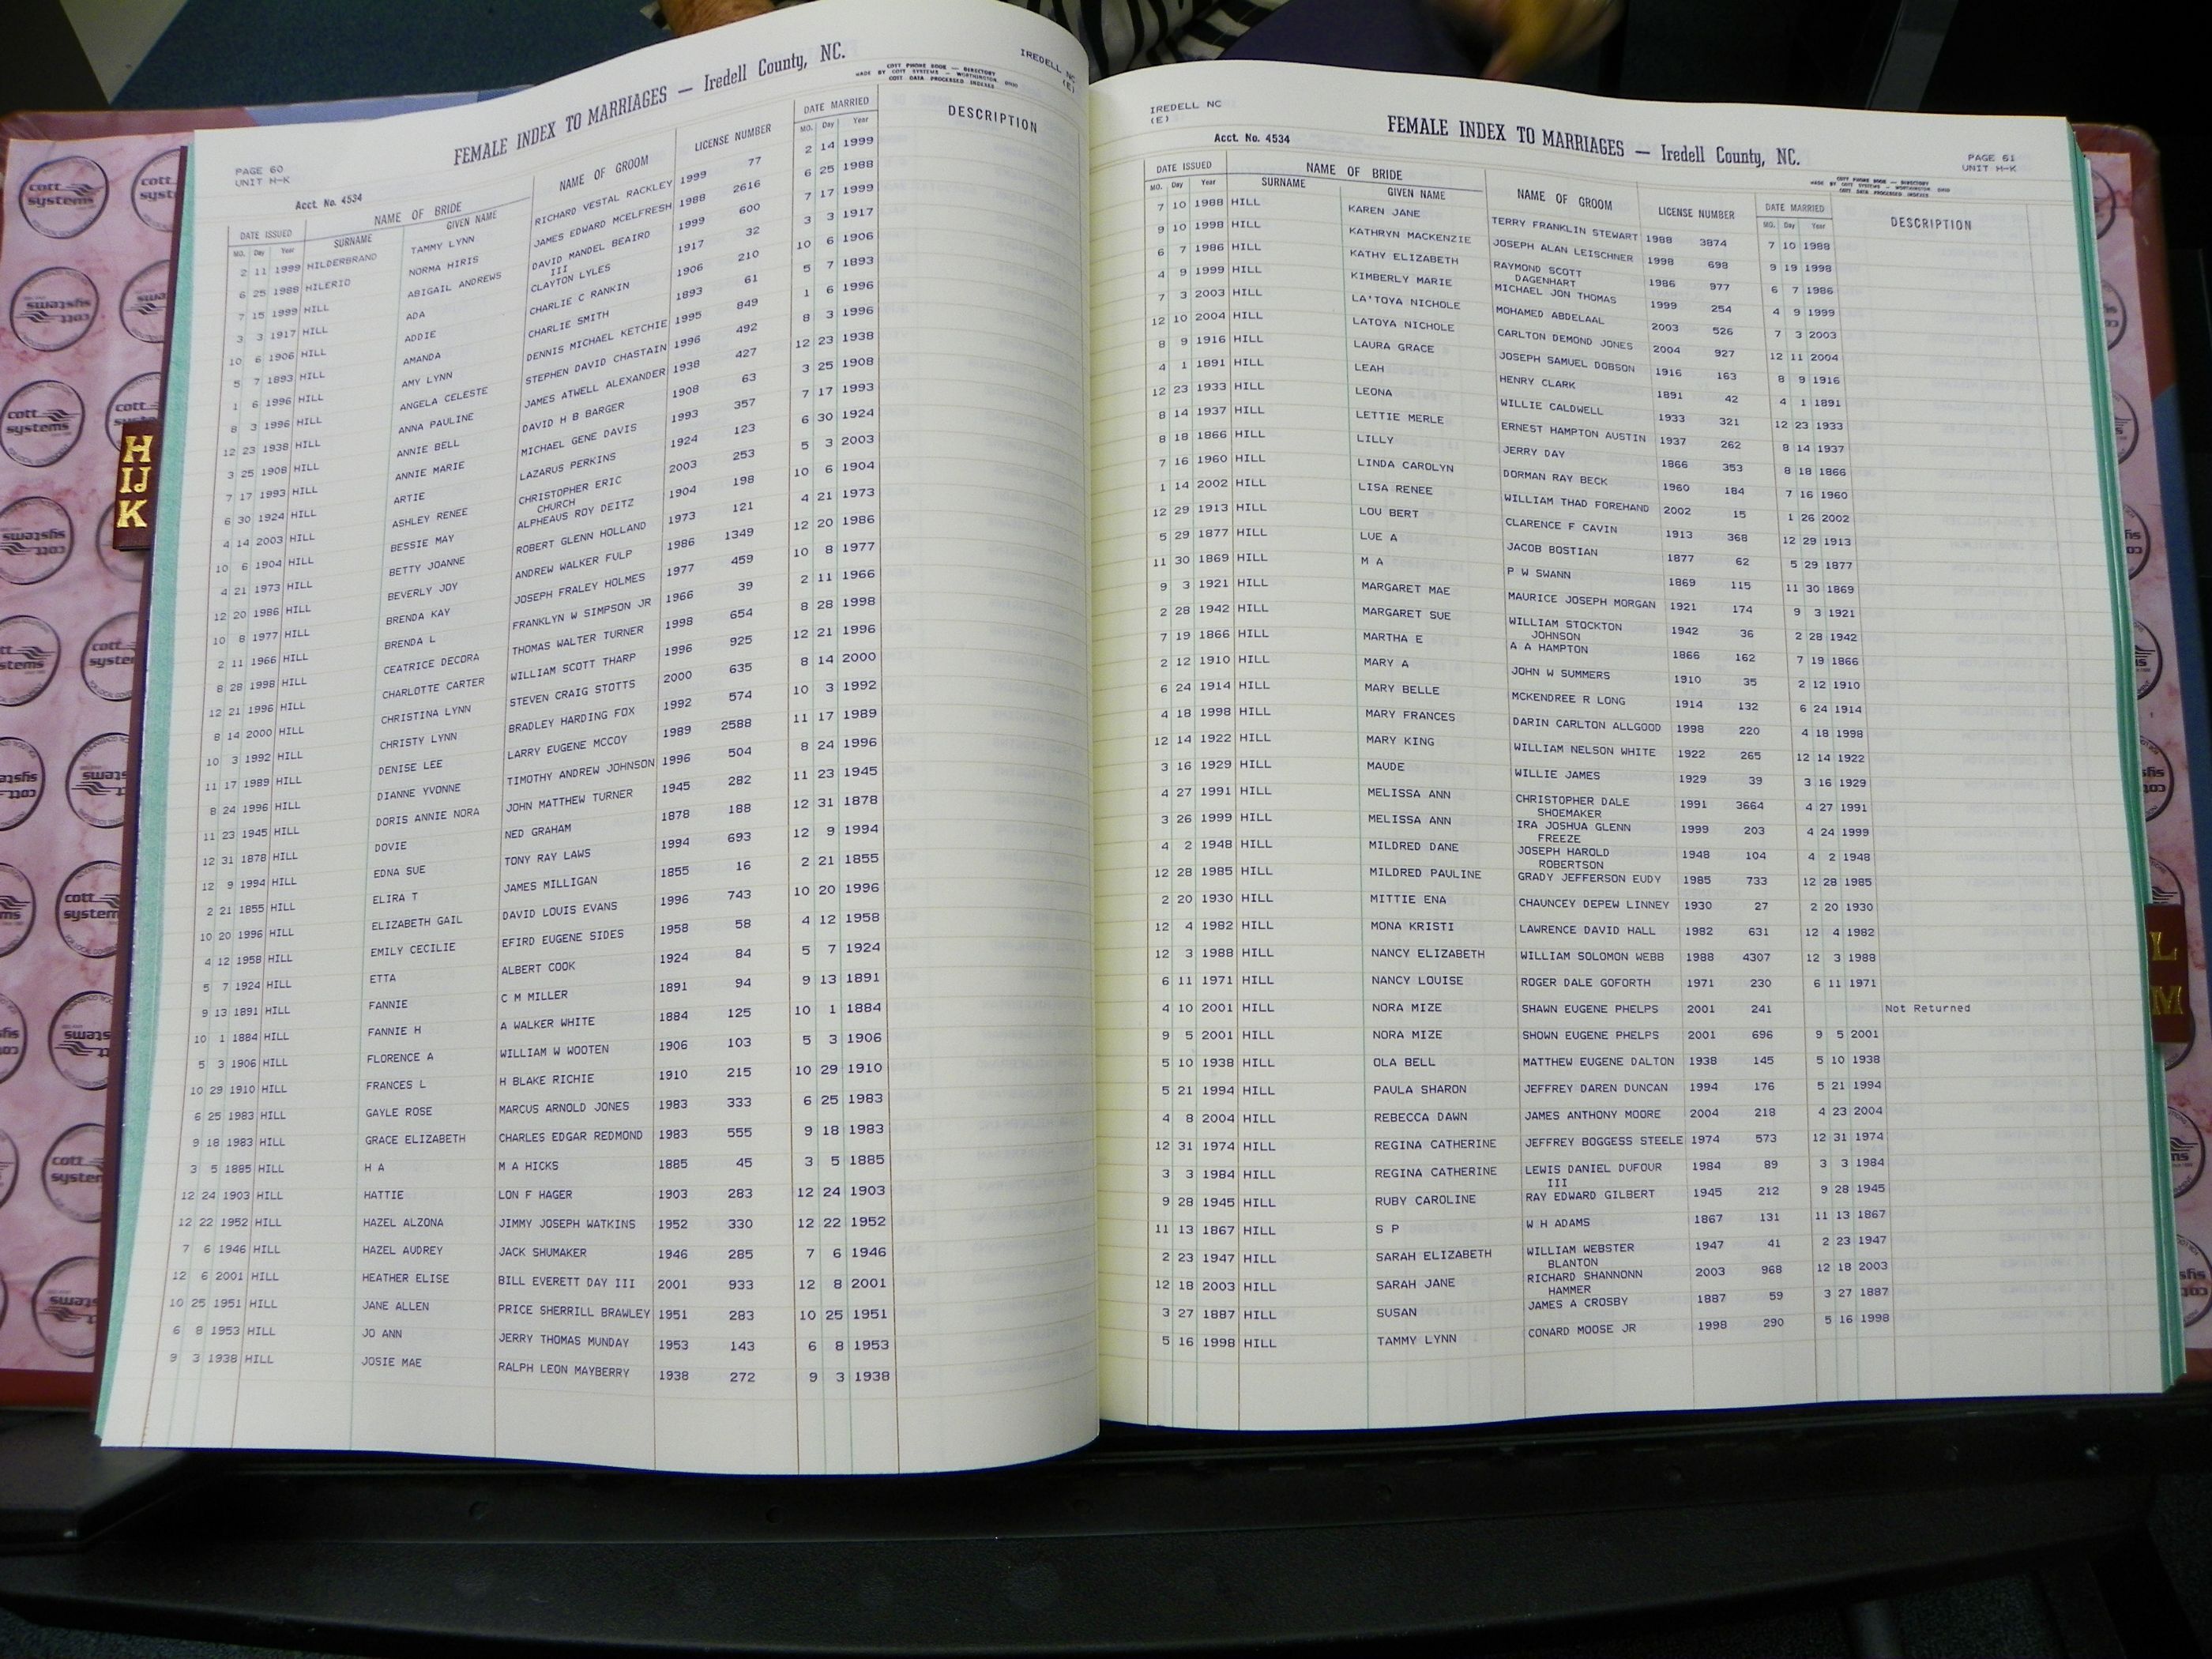 PAGE 60
UNIT H-K
FEMALE INDEX TO MARRIAGES — Iredell County, NC.
COTT PHONE BOOK — DIRECTORY
MADE BY COTT SYSTEMS — WORTHINGTON, OHIO
COTT DATA PROCESSED INDEXES
IREDELL NC
(E)
Acct. No. 4534
DATE ISSUED NAME OF BRIDE NAME OF GROOM LICENSE NUMBER DATE MARRIED DESCRIPTION
MO. Day Year SURNAME GIVEN NAME MO. Day Year
2 11 1999 HILDERBRAND TAMMY LYNN RICHARD VESTAL RACKLEY 1999 77 2 14 1999
6 25 1988 HILERIO NORMA HIRIS JAMES EDWARD MCELFRESH 1988 2616 6 25 1988
7 15 1999 HILL ABIGAIL ANDREWS DAVID MANDEL BEAIRD 1999 600 7 17 1999
III
3 3 1917 HILL ADA CLAYTON LYLES 1917 32 3 3 1917
10 6 1906 HILL ADDIE CHARLIE C RANKIN 1906 210 10 6 1906
5 7 1893 HILL AMANDA CHARLIE SMITH 1893 61 5 7 1893
1 6 1996 HILL AMY LYNN DENNIS MICHAEL KETCHIE 1995 849 1 6 1996
8 3 1996 HILL ANGELA CELESTE STEPHEN DAVID CHASTAIN 1996 492 8 3 1996
12 23 1938 HILL ANNA PAULINE JAMES ATWELL ALEXANDER 1938 427 12 23 1938
3 25 1908 HILL ANNIE BELL DAVID H B BARGER 1908 63 3 25 1908
7 17 1993 HILL ANNIE MARIE MICHAEL GENE DAVIS 1993 357 7 17 1993
6 30 1924 HILL ARTIE LAZARUS PERKINS 1924 123 6 30 1924
4 14 2003 HILL ASHLEY RENEE CHRISTOPHER ERIC 2003 253 5 3 2003
CHURCH
10 6 1904 HILL BESSIE MAY ALPHEAUS ROY DEITZ 1904 198 10 6 1904
4 21 1973 HILL BETTY JOANNE ROBERT GLENN HOLLAND 1973 121 4 21 1973
12 20 1986 HILL BEVERLY JOY ANDREW WALKER FULP 1986 1349 12 20 1986
10 8 1977 HILL BRENDA KAY JOSEPH FRALEY HOLMES 1977 459 10 8 1977
2 11 1966 HILL BRENDA L FRANKLYN W SIMPSON JR 1966 39 2 11 1966
8 28 1998 HILL CEATRICE DECORA THOMAS WALTER TURNER 1998 654 8 28 1998
12 21 1996 HILL CHARLOTTE CARTER WILLIAM SCOTT THARP 1996 925 12 21 1996
8 14 2000 HILL CHRISTINA LYNN STEVEN CRAIG STOTTS 2000 635 8 14 2000
10 3 1992 HILL CHRISTY LYNN BRADLEY HARDING FOX 1992 574 10 3 1992
11 17 1989 HILL DENISE LEE LARRY EUGENE MCCOY 1989 2588 11 17 1989
8 24 1996 HILL DIANNE YVONNE TIMOTHY ANDREW JOHNSON 1996 504 8 24 1996
11 23 1945 HILL DORIS ANNIE NORA JOHN MATTHEW TURNER 1945 282 11 23 1945
12 31 1878 HILL DOVIE NED GRAHAM 1878 188 12 31 1878
12 9 1994 HILL EDNA SUE TONY RAY LAWS 1994 693 12 9 1994
2 21 1855 HILL ELIRA T JAMES MILLIGAN 1855 16 2 21 1855
10 20 1996 HILL ELIZABETH GAIL DAVID LOUIS EVANS 1996 743 10 20 1996
4 12 1958 HILL EMILY CECILIE EFIRD EUGENE SIDES 1958 58 4 12 1958
5 7 1924 HILL ETTA ALBERT COOK 1924 84 5 7 1924
9 13 1891 HILL FANNIE C M MILLER 1891 94 9 13 1891
10 1 1884 HILL FANNIE H A WALKER WHITE 1884 125 10 1 1884
5 3 1906 HILL FLORENCE A WILLIAM W WOOTEN 1906 103 5 3 1906
10 29 1910 HILL FRANCES L H BLAKE RICHIE 1910 215 10 29 1910
6 25 1983 HILL GAYLE ROSE MARCUS ARNOLD JONES 1983 333 6 25 1983
9 18 1983 HILL GRACE ELIZABETH CHARLES EDGAR REDMOND 1983 555 9 18 1983
3 5 1885 HILL H A M A HICKS 1885 45 3 5 1885
12 24 1903 HILL HATTIE LON F HAGER 1903 283 12 24 1903
12 22 1952 HILL HAZEL ALZONA JIMMY JOSEPH WATKINS 1952 330 12 22 1952
7 6 1946 HILL HAZEL AUDREY JACK SHUMAKER 1946 285 7 6 1946
12 6 2001 HILL HEATHER ELISE BILL EVERETT DAY III 2001 933 12 8 2001
10 25 1951 HILL JANE ALLEN PRICE SHERRILL BRAWLEY 1951 283 10 25 1951
6 8 1953 HILL JO ANN JERRY THOMAS MUNDAY 1953 143 6 8 1953
9 3 1938 HILL JOSIE MAE RALPH LEON MAYBERRY 1938 272 9 3 1938
IREDELL NC
(E)
Acct. No. 4534
FEMALE INDEX TO MARRIAGES — Iredell County, NC.
PAGE 61
UNIT H-K
COTT PHONE BOOK — DIRECTORY
MADE BY COTT SYSTEMS — WORTHINGTON, OHIO
COTT DATA PROCESSED INDEXES
DATE ISSUED NAME OF BRIDE NAME OF GROOM LICENSE NUMBER DATE MARRIED DESCRIPTION
MO. Day Year SURNAME GIVEN NAME MO. Day Year
7 10 1988 HILL KAREN JANE TERRY FRANKLIN STEWART 1988 3874 7 10 1988
9 10 1998 HILL KATHRYN MACKENZIE JOSEPH ALAN LEISCHNER 1998 698 9 19 1998
6 7 1986 HILL KATHY ELIZABETH RAYMOND SCOTT 1986 977 6 7 1986
DAGENHART
4 9 1999 HILL KIMBERLY MARIE MICHAEL JON THOMAS 1999 254 4 9 1999
7 3 2003 HILL LA'TOYA NICHOLE MOHAMED ABDELAAL 2003 526 7 3 2003
12 10 2004 HILL LATOYA NICHOLE CARLTON DEMOND JONES 2004 927 12 11 2004
8 9 1916 HILL LAURA GRACE JOSEPH SAMUEL DOBSON 1916 163 8 9 1916
4 1 1891 HILL LEAH HENRY CLARK 1891 42 4 1 1891
12 23 1933 HILL LEONA WILLIE CALDWELL 1933 321 12 23 1933
8 14 1937 HILL LETTIE MERLE ERNEST HAMPTON AUSTIN 1937 262 8 14 1937
8 18 1866 HILL LILLY JERRY DAY 1866 353 8 18 1866
7 16 1960 HILL LINDA CAROLYN DORMAN RAY BECK 1960 184 7 16 1960
1 14 2002 HILL LISA RENEE WILLIAM THAD FOREHAND 2002 15 1 26 2002
12 29 1913 HILL LOU BERT CLARENCE F CAVIN 1913 368 12 29 1913
5 29 1877 HILL LUE A JACOB BOSTIAN 1877 62 5 29 1877
11 30 1869 HILL M A P W SWANN 1869 115 11 30 1869
9 3 1921 HILL MARGARET MAE MAURICE JOSEPH MORGAN 1921 174 9 3 1921
2 28 1942 HILL MARGARET SUE WILLIAM STOCKTON 1942 36 2 28 1942
JOHNSON
7 19 1866 HILL MARTHA E A A HAMPTON 1866 162 7 19 1866
2 12 1910 HILL MARY A JOHN W SUMMERS 1910 35 2 12 1910
6 24 1914 HILL MARY BELLE MCKENDREE R LONG 1914 132 6 24 1914
4 18 1998 HILL MARY FRANCES DARIN CARLTON ALLGOOD 1998 220 4 18 1998
12 14 1922 HILL MARY KING WILLIAM NELSON WHITE 1922 265 12 14 1922
3 16 1929 HILL MAUDE WILLIE JAMES 1929 39 3 16 1929
4 27 1991 HILL MELISSA ANN CHRISTOPHER DALE 1991 3664 4 27 1991
SHOEMAKER
3 26 1999 HILL MELISSA ANN IRA JOSHUA GLENN 1999 203 4 24 1999
FREEZE
4 2 1948 HILL MILDRED DANE JOSEPH HAROLD 1948 104 4 2 1948
ROBERTSON
12 28 1985 HILL MILDRED PAULINE GRADY JEFFERSON EUDY 1985 733 12 28 1985
2 20 1930 HILL MITTIE ENA CHAUNCEY DEPEW LINNEY 1930 27 2 20 1930
12 4 1982 HILL MONA KRISTI LAWRENCE DAVID HALL 1982 631 12 4 1982
12 3 1988 HILL NANCY ELIZABETH WILLIAM SOLOMON WEBB 1988 4307 12 3 1988
6 11 1971 HILL NANCY LOUISE ROGER DALE GOFORTH 1971 230 6 11 1971
4 10 2001 HILL NORA MIZE SHAWN EUGENE PHELPS 2001 241 Not Returned
9 5 2001 HILL NORA MIZE SHOWN EUGENE PHELPS 2001 696 9 5 2001
5 10 1938 HILL OLA BELL MATTHEW EUGENE DALTON 1938 145 5 10 1938
5 21 1994 HILL PAULA SHARON JEFFREY DAREN DUNCAN 1994 176 5 21 1994
4 8 2004 HILL REBECCA DAWN JAMES ANTHONY MOORE 2004 218 4 23 2004
12 31 1974 HILL REGINA CATHERINE JEFFREY BOGGESS STEELE 1974 573 12 31 1974
3 3 1984 HILL REGINA CATHERINE LEWIS DANIEL DUFOUR 1984 89 3 3 1984
III
9 28 1945 HILL RUBY CAROLINE RAY EDWARD GILBERT 1945 212 9 28 1945
11 13 1867 HILL S P W H ADAMS 1867 131 11 13 1867
2 23 1947 HILL SARAH ELIZABETH WILLIAM WEBSTER 1947 41 2 23 1947
BLANTON
12 18 2003 HILL SARAH JANE RICHARD SHANNONN 2003 968 12 18 2003
HAMMER
3 27 1887 HILL SUSAN JAMES A CROSBY 1887 59 3 27 1887
5 16 1998 HILL TAMMY LYNN CONARD MOOSE JR 1998 290 5 16 1998
H
IJ
K
L
M
cott
systems